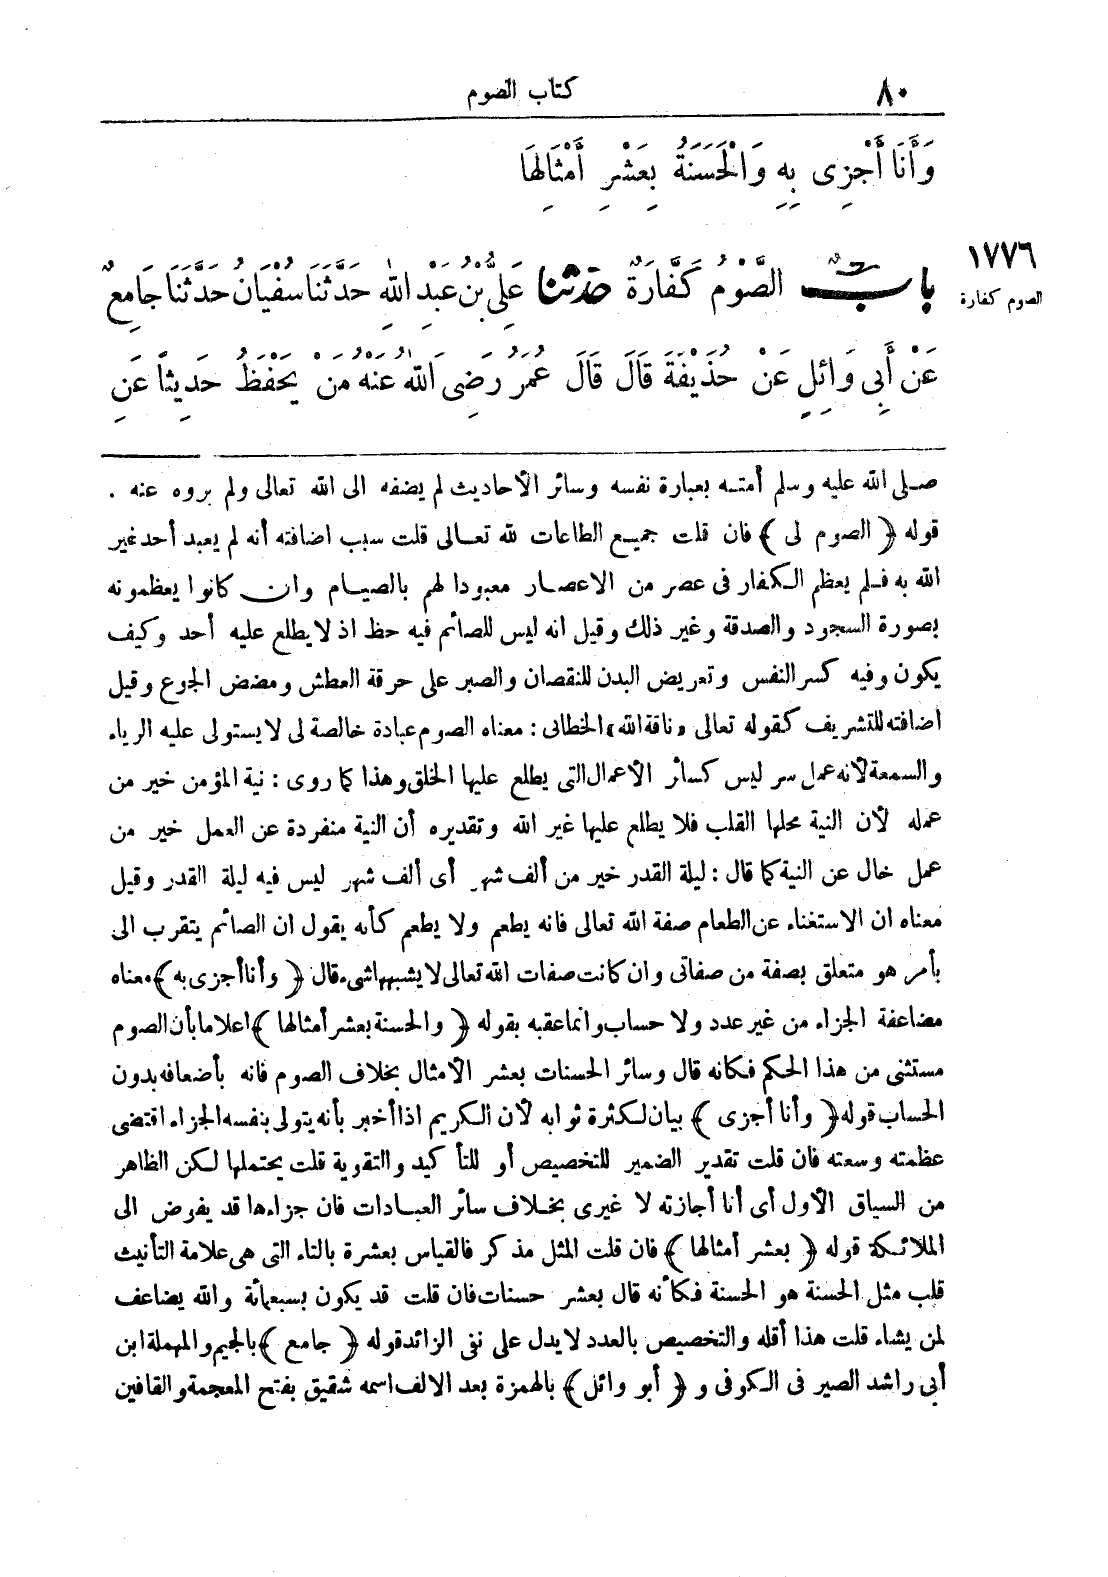 ٨٠ كتاب الصوم
وَأَنَا أَجْزِى بِهِ وَالْحَسَنَةُ بِعَشْرِ أَمْثَالِهَا
١٧٧٦
الصوم كفارة
بابٌ الصَّوْمُ كَفَّارَةٌ حدثنا عَلِىُّ بْنُ عَبْدِ اللهِ حَدَّثَنَا سُفْيَانُ حَدَّثَنَا جَامِعٌ
عَنْ أَبِى وَائِلٍ عَنْ حُذَيْفَةَ قَالَ قَالَ عُمَرُ رَضِىَ اللهُ عَنْهُ مَنْ يَحْفَظُ حَدِيثًا عَنِ
صلى الله عليه وسلم أمته بعبارة نفسه وسائر الأحاديث لم يضفه الى الله تعالى ولم يروه عنه .
قوله ﴿ الصوم لى ﴾ فان قلت جميع الطاعات لله تعالى قلت سبب اضافته أنه لم يعبد أحد غير
الله به فلم يعظم الكفار فى عصر من الاعصار معبودا لهم بالصيام وان كانوا يعظمونه
بصورة السجود والصدقة وغير ذلك وقيل انه ليس للصائم فيه حظ اذ لا يطلع عليه أحد وكيف
يكون وفيه كسر النفس وتعريض البدن للنقصان والصبر على حرقة العطش ومضض الجوع وقيل
اضافته للتشريف كقوله تعالى «ناقة الله» الخطابى : معناه الصوم عبادة خالصة لى لا يستولى عليه الرياء
والسمعة لأنه عمل سر ليس كسائر الأعمال التى يطلع عليها الخلق وهذا كما روى : نية المؤمن خير من
عمله لأن النية محلها القلب فلا يطلع عليها غير الله وتقديره أن النية منفردة عن العمل خير من
عمل خال عن النية كما قال : ليلة القدر خير من ألف شهر أى ألف شهر ليس فيه ليلة القدر وقيل
معناه ان الاستغناء عن الطعام صفة الله تعالى فانه يطعم ولا يطعم كأنه يقول ان الصائم يتقرب الى
بأمر هو متعلق بصفة من صفاتى وان كانت صفات الله تعالى لا يشبهها شىء قال ﴿ وأنا أجزى به ﴾ معناه
مضاعفة الجزاء من غير عدد ولا حساب وانما عقبه بقوله ﴿ والحسنة بعشر أمثالها ﴾ اعلاما بأن الصوم
مستثنى من هذا الحكم فكانه قال وسائر الحسنات بعشر الأمثال بخلاف الصوم فانه بأضعافه بدون
الحساب قوله ﴿ وأنا أجزى ﴾ بيان لكثرة ثوابه لأن الكريم اذا أخبر بأنه يتولى بنفسه الجزاء اقتضى
عظمته وسعته فان قلت تقدير الضمير للتخصيص أو للتأكيد والتقوية قلت يحتملها لكن الظاهر
من السياق الأول أى أنا أجازته لا غيرى بخلاف سائر العبادات فان جزاءها قد يفوض الى
الملائكة قوله ﴿ بعشر أمثالها ﴾ فان قلت المثل مذكر فالقياس بعشرة بالتاء التى هى علامة التأنيث
قلب مثل الحسنة هو الحسنة فكأنه قال بعشر حسنات فان قلت قد يكون بسبعمائة والله يضاعف
لمن يشاء قلت هذا أقله والتخصيص بالعدد لا يدل على نفى الزائد قوله ﴿ جامع ﴾ بالجيم والمهملة ابن
أبى راشد الصير فى الكوفى و ﴿ أبو وائل ﴾ بالهمزة بعد الالف اسمه شقيق بفتح المعجمة والقافين